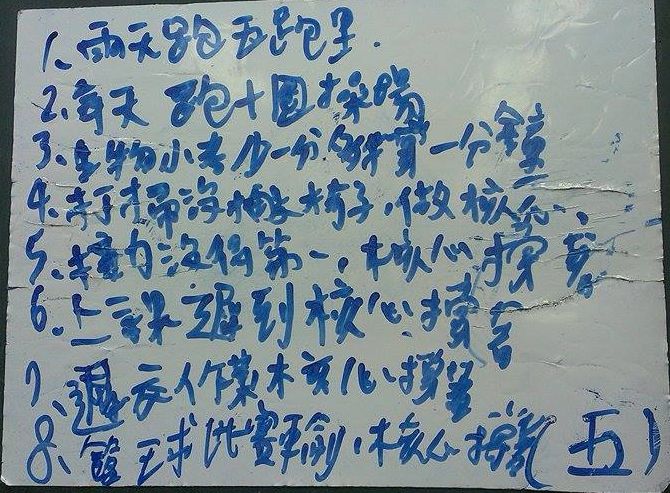 1、雨天跑五跑星.
2、每天跑十圈操場
3、生物小考少一分 一分鐘
4、打掃沒抽椅子,做核心、
5、接力沒得第一,核心撐著
6、上課遲到核心撐著
7、遲交作業核心撐著
8、籃球比賽輸,核心撐著(五)